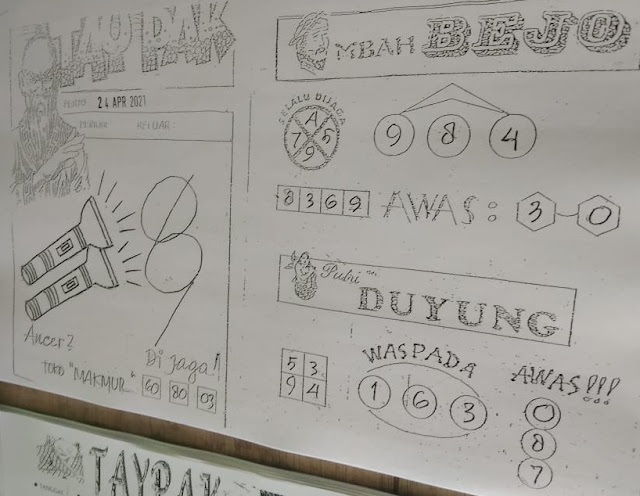 TAYPAK
PERIO 24 APR 2021
KELUAR:
89
Ancer2
TOKO "MAKMUR"
Di jaga!!
60 80 03
MBAH BEJO
SELALU DIJAGA
A
7 5
9
9 8 4
8 3 6 9
AWAS: 3-0
Putri
DUYUNG
5 3
9 4
WASPADA
1 6 3
AWAS!!!
0
8
7
TAYPAK